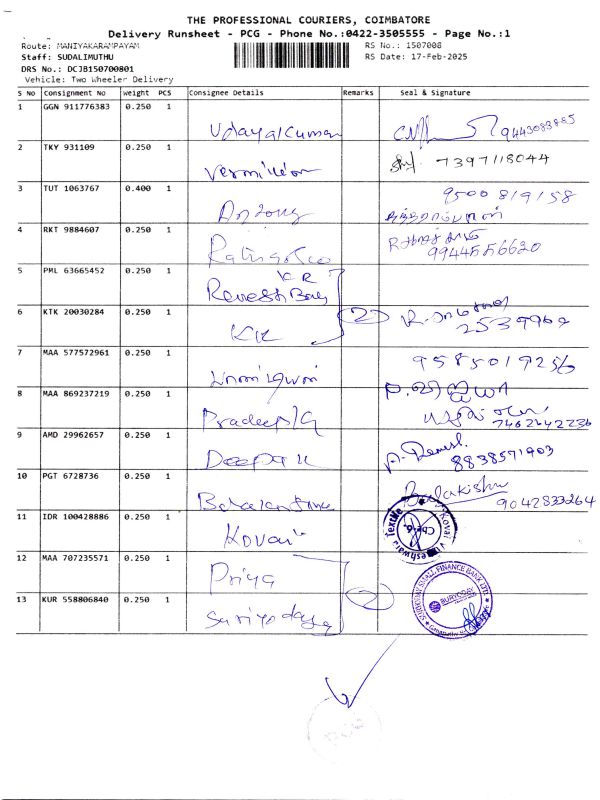 THE PROFESSIONAL COURIERS, COIMBATORE
Delivery Runsheet - PCG - Phone No.:0422-3505555 - Page No.:1
Route: MANIYAKARAMPAYAM
RS No.: 1507008
Staff: SUDALIMUTHU
RS Date: 17-Feb-2025
DRS No.: DCJB150700801
Vehicle: Two Wheeler Delivery
S No Consignment No weight PCS Consignee Details Remarks Seal & Signature
1 GGN 911776383 0.250 1 Udayakumar 9443083885
2 TKY 931109 0.250 1 Vermilion 7397118044
3 TUT 1063767 0.400 1 Antony 9500819158
4 RKT 9884607 0.250 1 9944556620
5 PML 63665452 0.250 1 KR
Ramesh Babu
6 KTK 20030284 0.250 1 KK 2 2539962
7 MAA 577572961 0.250 1 9585019256
8 MAA 869237219 0.250 1 Pradeep 7402642236
9 AMD 29962657 0.250 1 Deepa K P. Ramesh. 8838571903
10 PGT 6728736 0.250 1 Balakishn 9042833264
11 IDR 100428886 0.250 1 Kovai Kovai Textile
12 MAA 707235571 0.250 1 Priya
13 KUR 558806840 0.250 1 Suriyoday 2 SURYODAY SMALL FINANCE BANK LTD.
SURYODAY